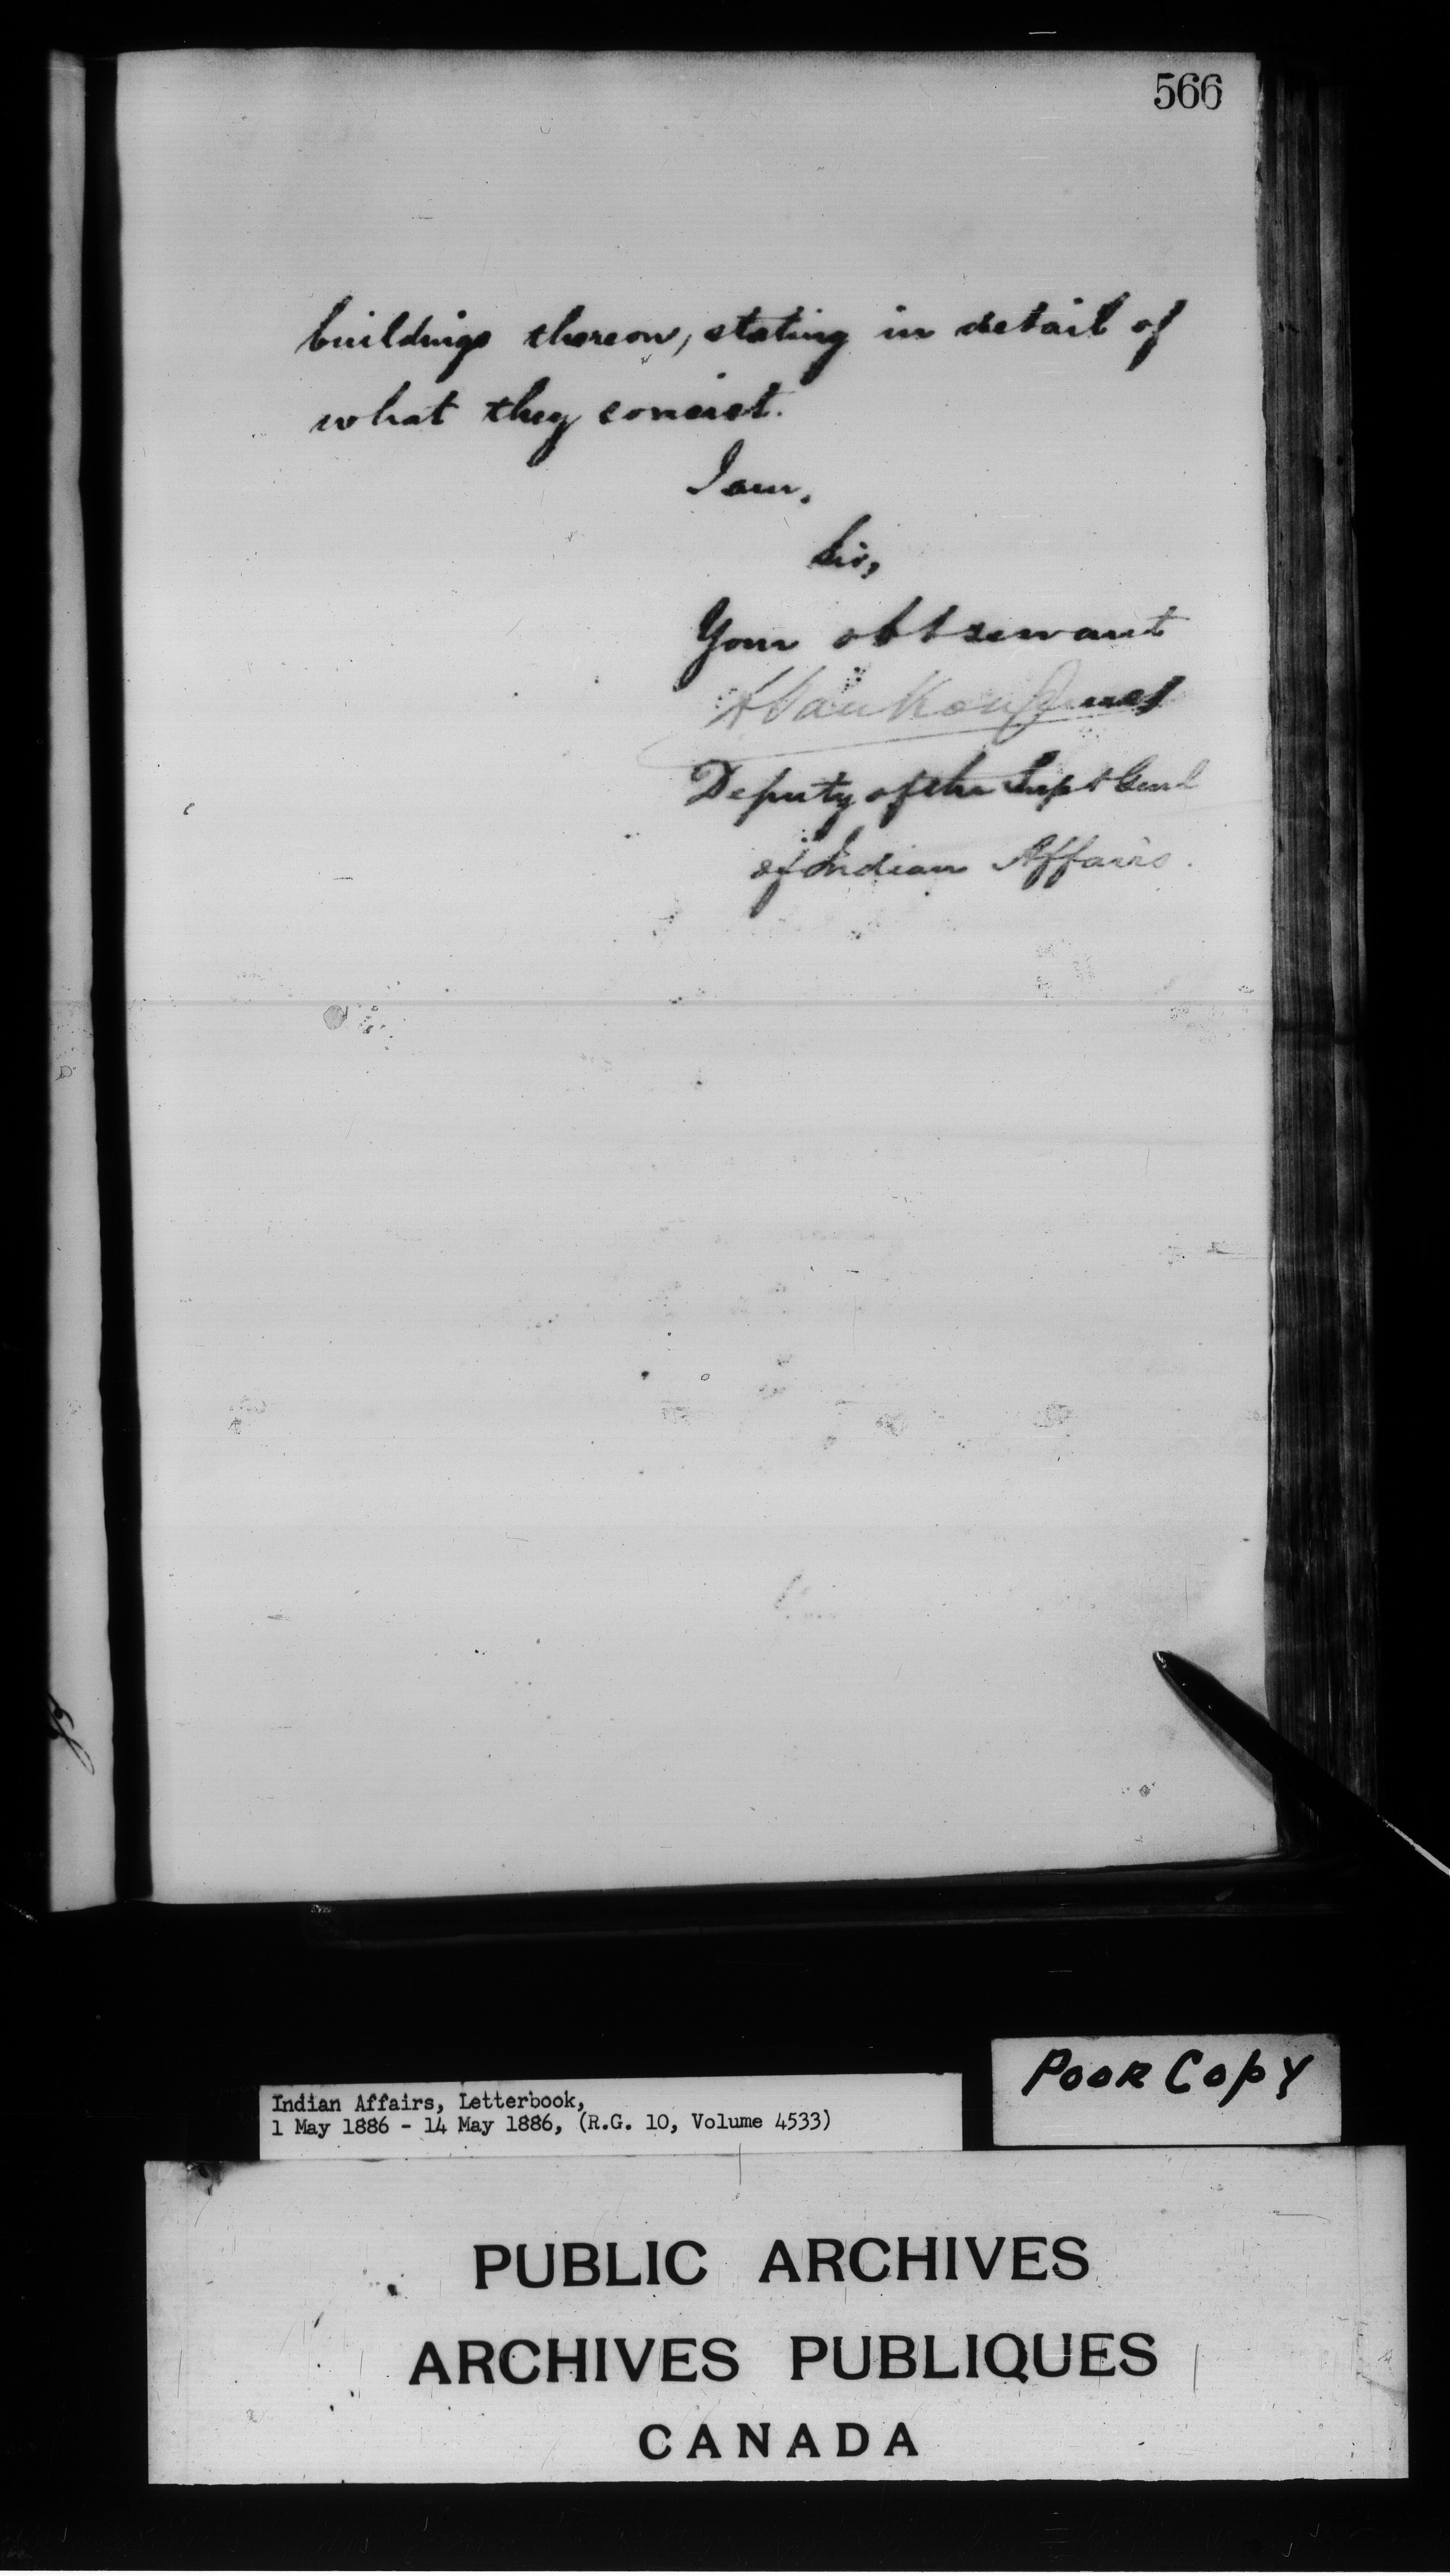 566
buildings thereon, stating in detail of
what they consist.
I am,
Sir,
Your obt servant
L VanKoughnet
Deputy of the Supt Genl
of Indian Affairs.
Poor Copy
Indian Affairs, Letterbook,
1 May 1886 - 14 May 1886, (R.G. 10, Volume 4533)
PUBLIC ARCHIVES
ARCHIVES PUBLIQUES
CANADA